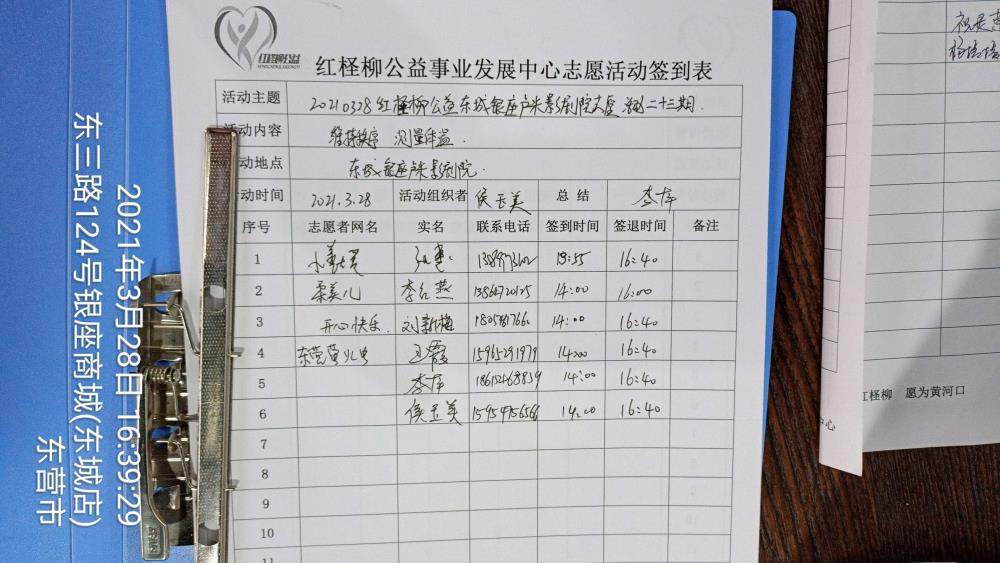 红柽柳公益
红柽柳公益事业发展中心志愿活动签到表
活动主题 20210328红柽柳公益东城银座卢米影剧院 二十三期.
活动内容 维持秩序 测量体温.
动地点 东城银座卢米影剧院.
动时间 2021.3.28 活动组织者 侯玉美 总 结 李萍
序号 志愿者网名 实名 联系电话 签到时间 签退时间 备注
1 16:40
2 柔美儿 李红燕 14:00 16:00
3 开心快乐. 刘新梅 14:00 16:40
4 王霞 15965291979 14:00 16:40
5 李萍 14:00 16:40
6 侯玉美 14:00 16:40
7
8
9
10
11
2021年3月28日16:39:29
东三路124号银座商城(东城店)
东营市
红柽柳 愿为黄河口
中心